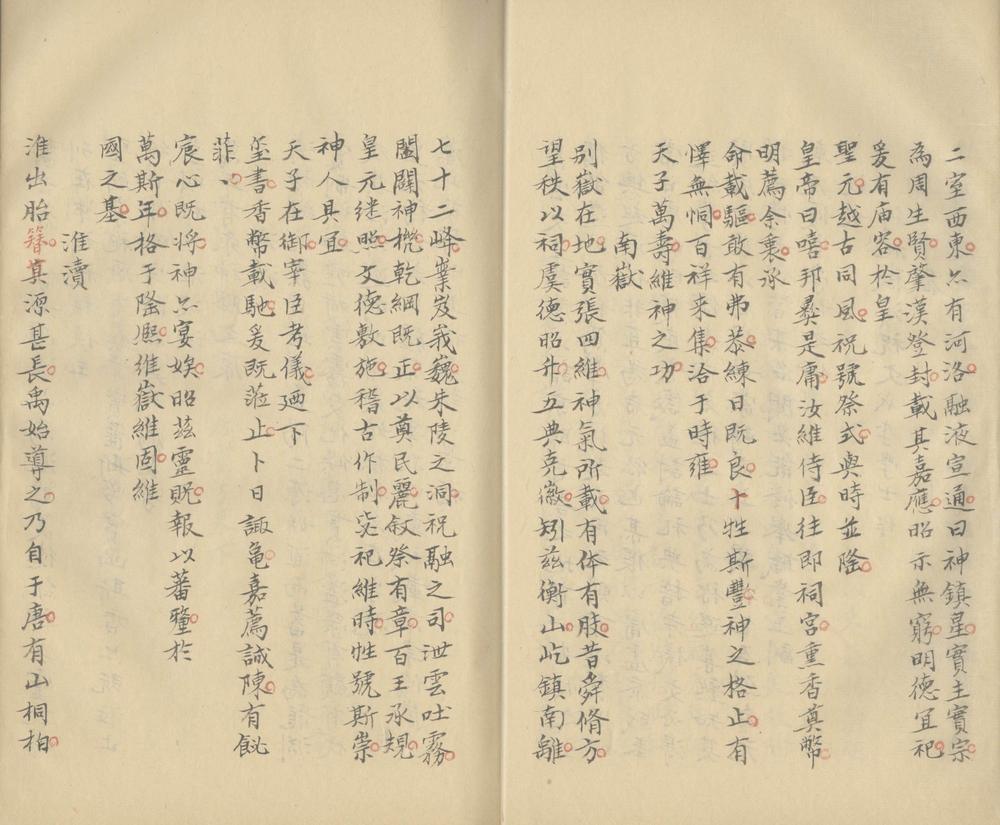 二室西東亦有河洛融液宣通曰神鎮星實主實宗
為周生賢肇漢登封載其嘉應昭示無窮明德宜祀
爰有庙容於皇
聖元越古同風祝號祭式與時並隆
皇帝曰嘻邦彞是庸汝維侍臣往即祠宮熏香奠幣
明薦余衷承
命載驅敢有弗恭練日既良十牲斯豐神之格止有
懌無恫百祥来集洽于時雍
天子萬壽維神之功
南嶽
別嶽在地實張四維神氣所載有体有肢昔舜脩方
望秩以祠虞德昭升五典克徽矧兹衡山屹鎮南離
七十二峰業岌峩巍朱陵之洞祝融之司泄雲吐霧
闔闢神機乾綱既正以奠民麗叙祭有章百王承規
皇元继照文德敷施稽古作制毖祀維時牲號斯崇
神人具宜
天子在御宰臣考儀廼下
璽書香幣載馳爰既蒞止卜日諏龟嘉薦誠陳有飶
菲、
宸心既将神亦宴娭昭兹靈贶報以蕃釐於
萬斯年格于隆熈維嶽維固維
國之基
淮瀆
淮出胎簮其源甚長禹始導之乃自于唐有山桐柏